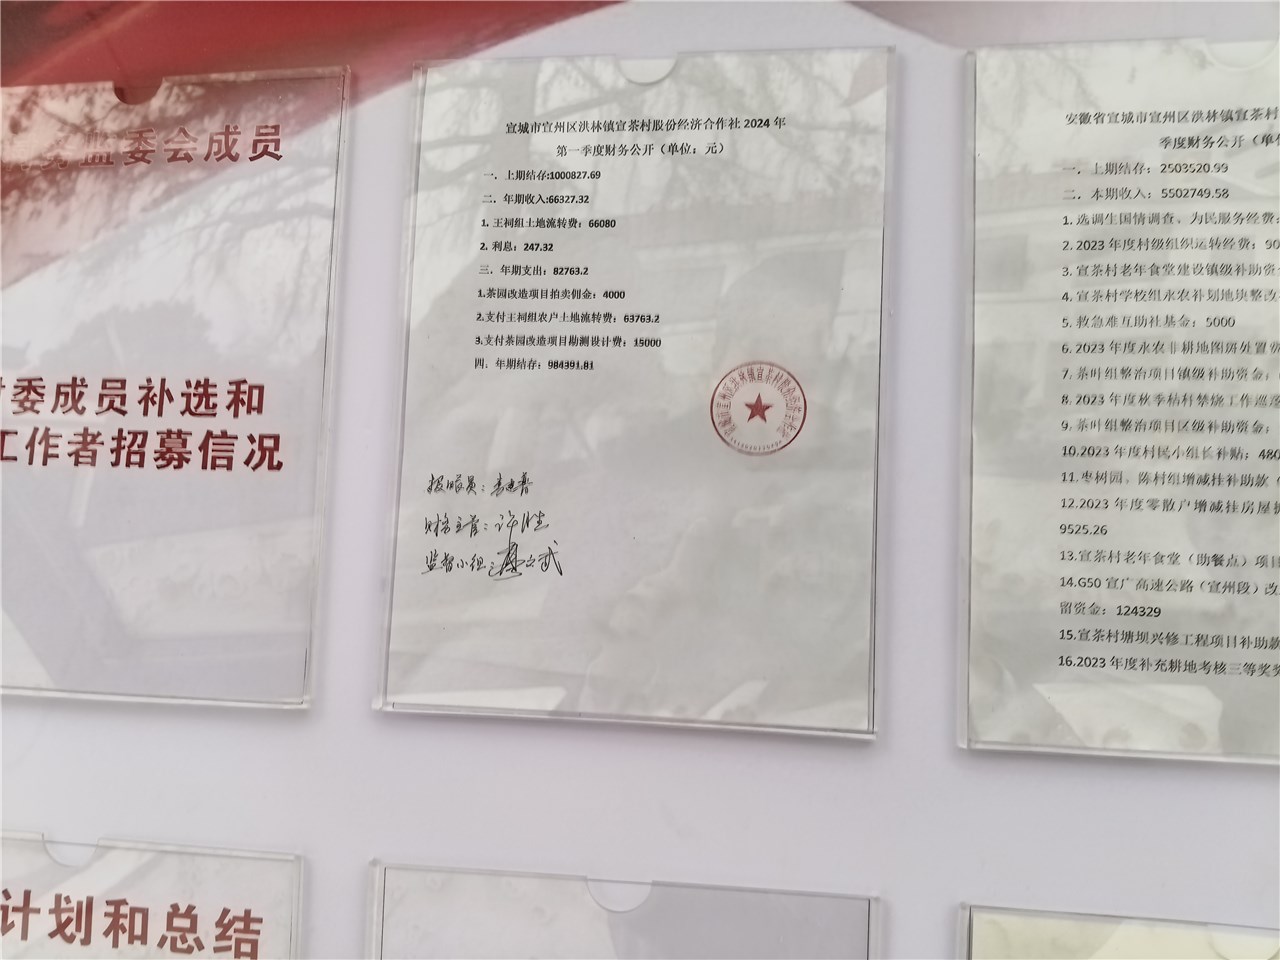 监委会成员
村委成员补选和
工作者招募信况
宣城市宣州区洪林镇宣茶村股份经济合作社2024年
第一季度财务公开（单位：元）
一．上期结存:1000827.69
二．年期收入:66327.32
1. 王祠组土地流转费：66080
2. 利息：247.32
三．年期支出：82763.2
1.茶园改造项目拍卖佣金：4000
2.支付王祠组农户土地流转费：63763.2
3.支付茶园改造项目勘测设计费：15000
四．年期结存：984391.81
报账员：
财务主管：许胜
监督小组：
安徽省宣城市宣州区洪林镇宣茶村
季度财务公开（单位
一．上期结存：2503520.99
二．本期收入：5502749.58
1. 选调生国情调查、为民服务经费：
2. 2023 年度村级组织运转经费：90
3. 宣茶村老年食堂建设镇级补助资金
4. 宣茶村学校组永农补划地块整改
5. 救急难互助社基金：5000
6. 2023 年度永农非耕地图斑处置费
7. 茶叶组整治项目镇级补助资金：
8. 2023 年度秋季秸秆禁烧工作巡逻
9. 茶叶组整治项目区级补助资金：
10.2023 年度村民小组长补贴：480
11. 枣树园、陈村组增减挂补助款（
12.2023 年度零散户增减挂房屋拆
9525.26
13.宣茶村老年食堂（助餐点）项目
14.G50 宣广高速公路（宣州段）改
留资金：124329
15.宣茶村塘坝兴修工程项目补助款
16.2023 年度补充耕地考核三等奖奖
计划和总结